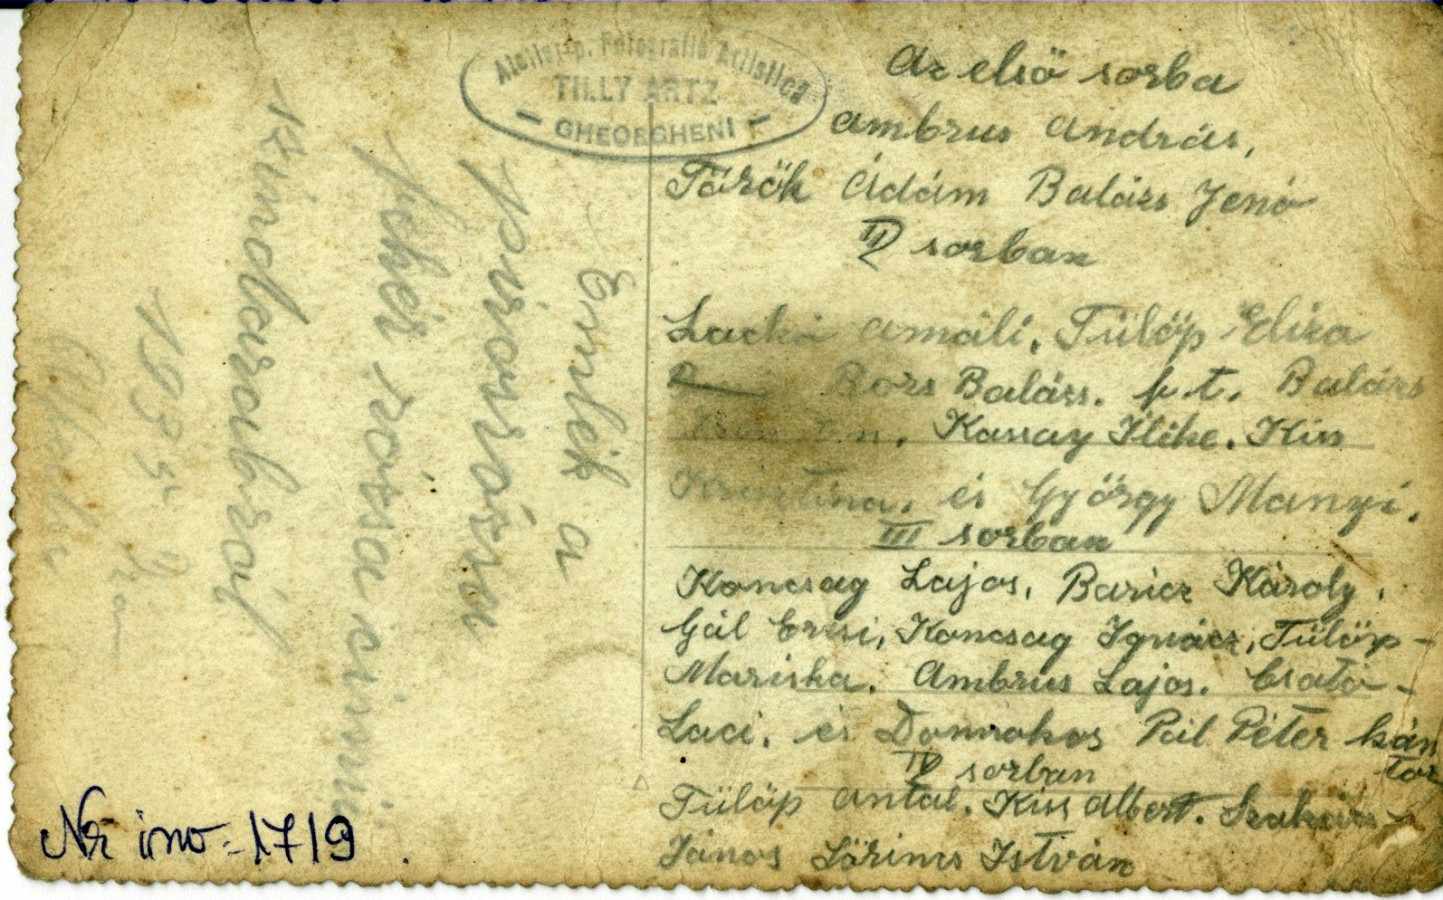 Atelier p. Fotografie Artistica
TILLY ARTZ
- GHEORGHENI -
Emlék a
pirosrózsa
fehér rózsa cimmü
szindarabról
193
Az első sorba
Ambrus András,
Török Ádám Balázs Jenő
II sorban
Amáli, Fülöp Eliza
Bors Balázs. p.t. Balázs
Kassay Ilike. Kiss
Krisztina, és György Manyi.
III sorban
Koncsag Lajos, Baricz Károly,
Gál Erzsi, Koncsag Ignácz, Fülöp-
Mariska. Ambrus Lajos. Csató-
Laci, és Domokos Pál Péter kán
tor
IV sorban
Fülöp Antal. Kiss Albert. Szakács
János Lőrincz István
Nr inv. 1719